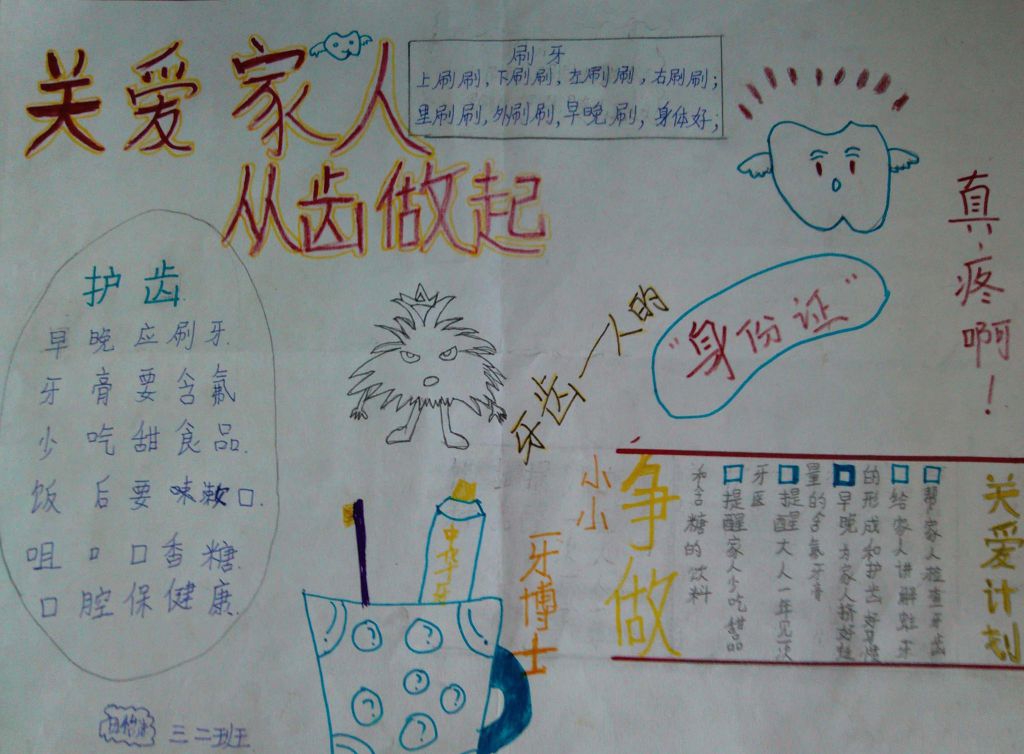 关爱家人
从齿做起
刷牙
上刷刷,下刷刷,左刷刷,右刷刷;
里刷刷,外刷刷,早晚刷,身体好;
真疼啊!
护齿
早晚应刷牙.
牙膏要含氟
少吃甜食品.
饭后要嗽口.
咀口口香糖.
口腔保健康.
牙齿一人的
"身份证"
关爱计划
帮家人检查牙齿
给家人讲解蛀牙
的形成和护齿好习惯
早晚为家人挤好
量的含氟牙膏
提醒大人一年见一次
牙医
提醒家人少吃甜品
和含糖的饮料
争做
小小
牙博士
中华牙
三二班